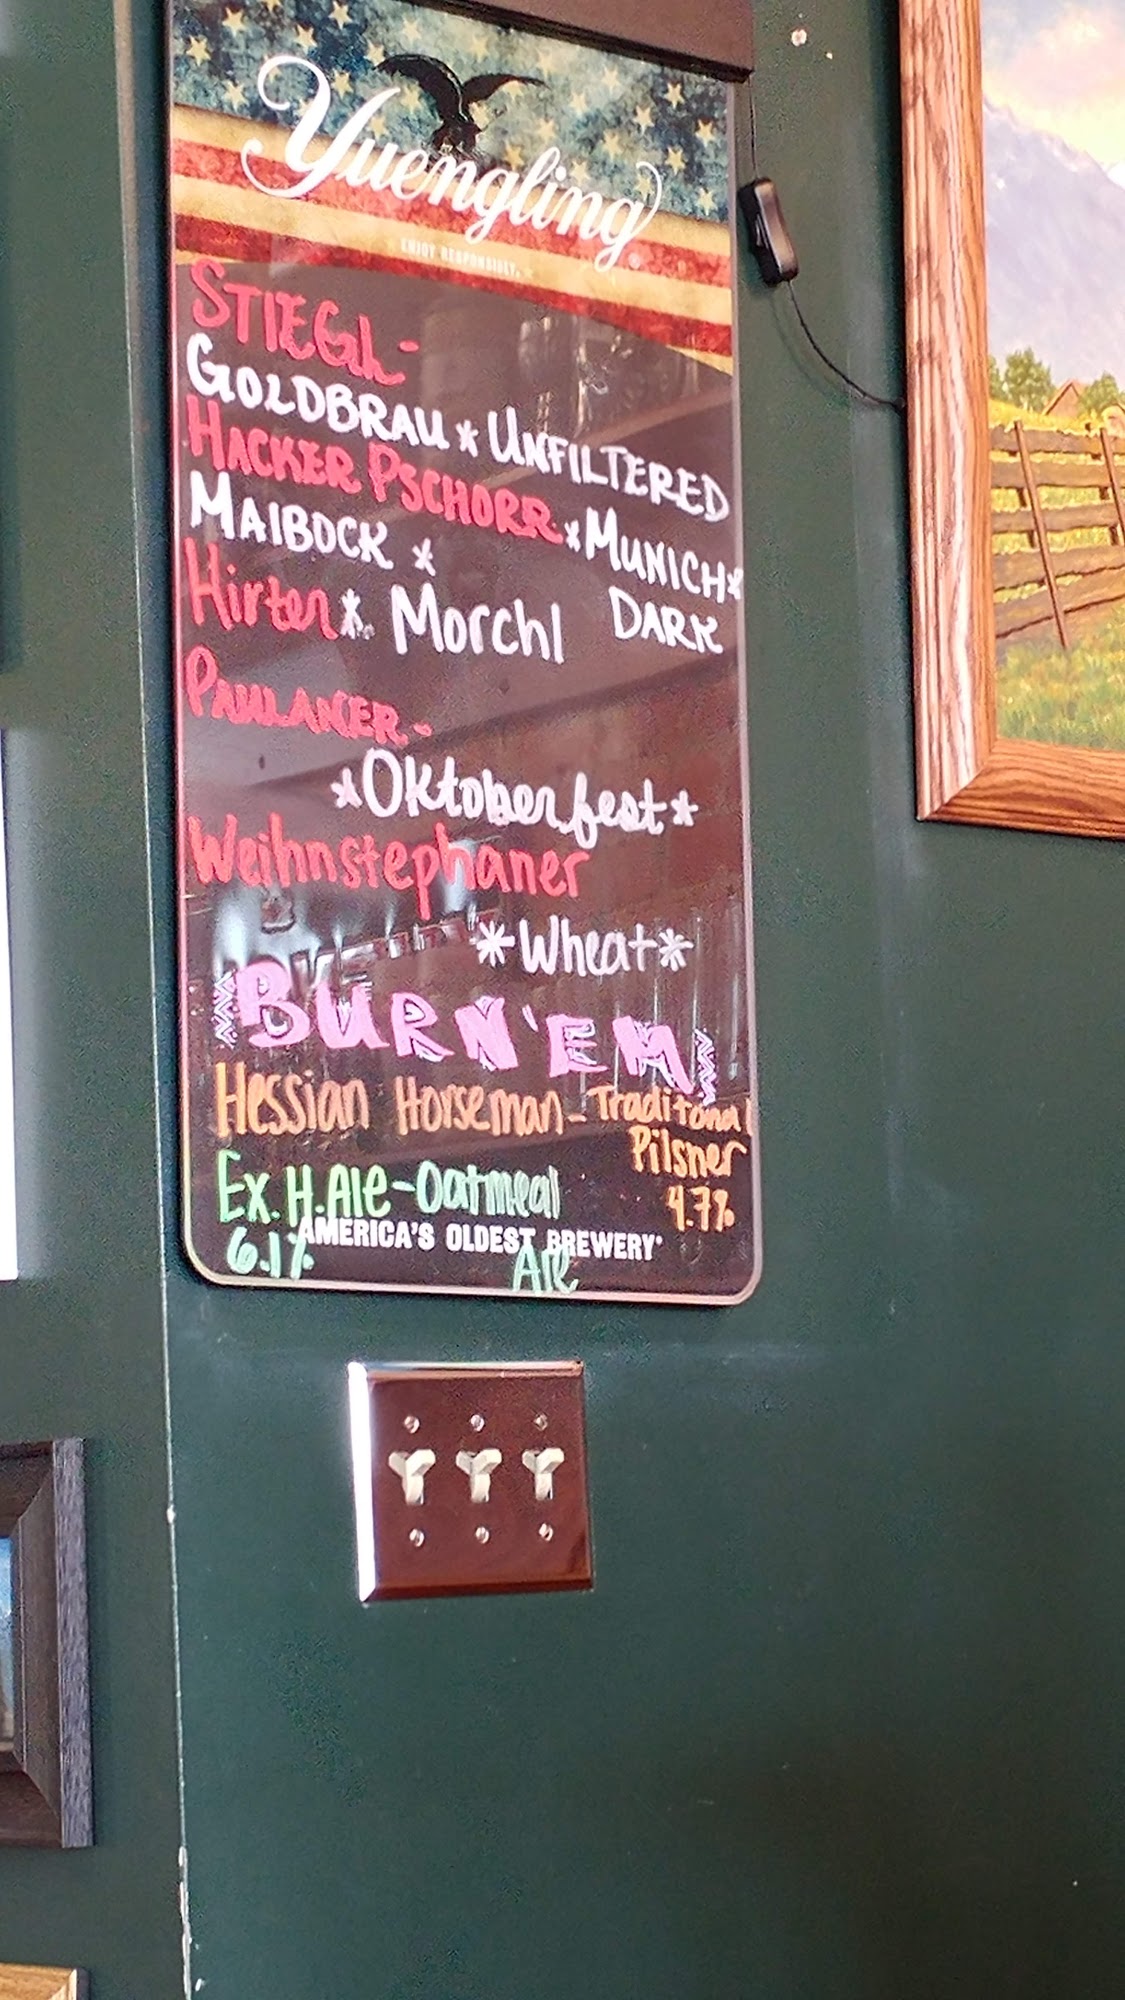 Yuengling
ENJOY RESPONSIBLY.
STIEGL-
GOLDBRAU * UNFILTERED
HACKER PSCHORR * MUNICH *
MAIBOCK * DARK
Hirter * Morchl
PAULANER -
* Oktoberfest *
Weihnstephaner
* Wheat *
BURN'EM
Hessian Horseman - Traditonal
Pilsner
4.7%
Ex. H. Ale - Oatmeal
AMERICA'S OLDEST BREWERY
6.1% Ale